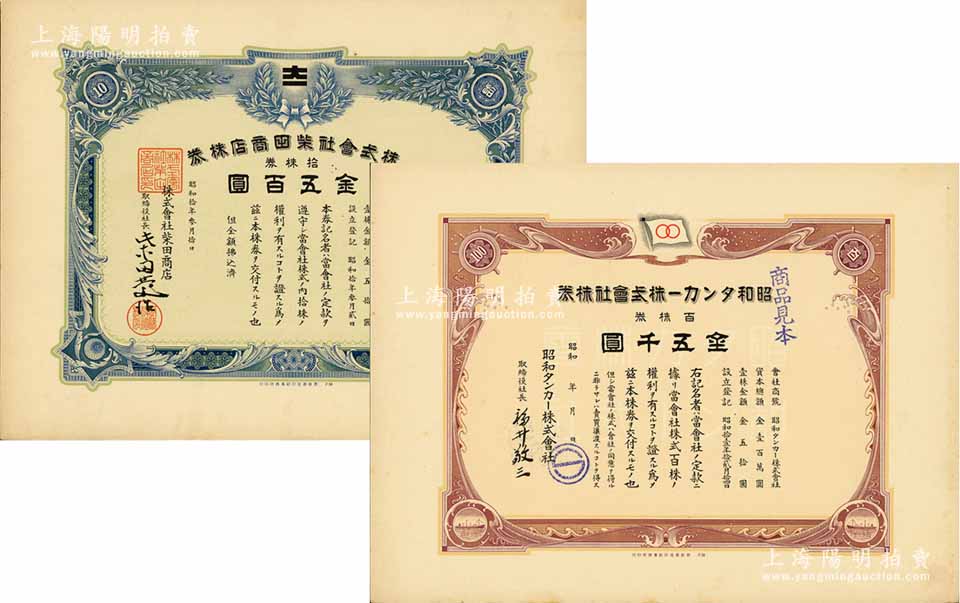 上海陽明拍賣
www.yangmingauction.com
10
株式會社柴田商店株券
拾株券
金五百圓
壹株金額 金五拾圓
設立登記 昭和拾年參月貳日
本券記名者ハ當會社ノ定款ヲ
遵守シ當會社株式ノ內拾株ノ
權利ヲ有スルコトヲ證スル爲メ
茲ニ本株券ヲ交付スルモノ也
但全額拂込濟
昭和拾年參月拾日
株式會社柴田商店
取締役社長
上海陽明拍賣
www.yangmingauction.com
100
商品見本
昭和タンカー株式會社株券
百株券
金五千圓
會社商號 昭和タンカー株式會社
資本總額 金壹百萬圓
壹株金額 金五拾圓
設立登記
右記名者ハ當會社ノ定款ニ
據リ當會社株式百株ノ
權利ヲ有スルコトヲ證スル爲メ
茲ニ本株券ヲ交付スルモノ也
但シ當會社ノ株式ハ會社ノ同意ヲ得ルニ非ラザレバ賣買讓渡スルコトヲ得ス
昭和 年 月 日
昭和タンカー株式會社
取締役社長
上海陽明拍賣
www.yangmingauction.com